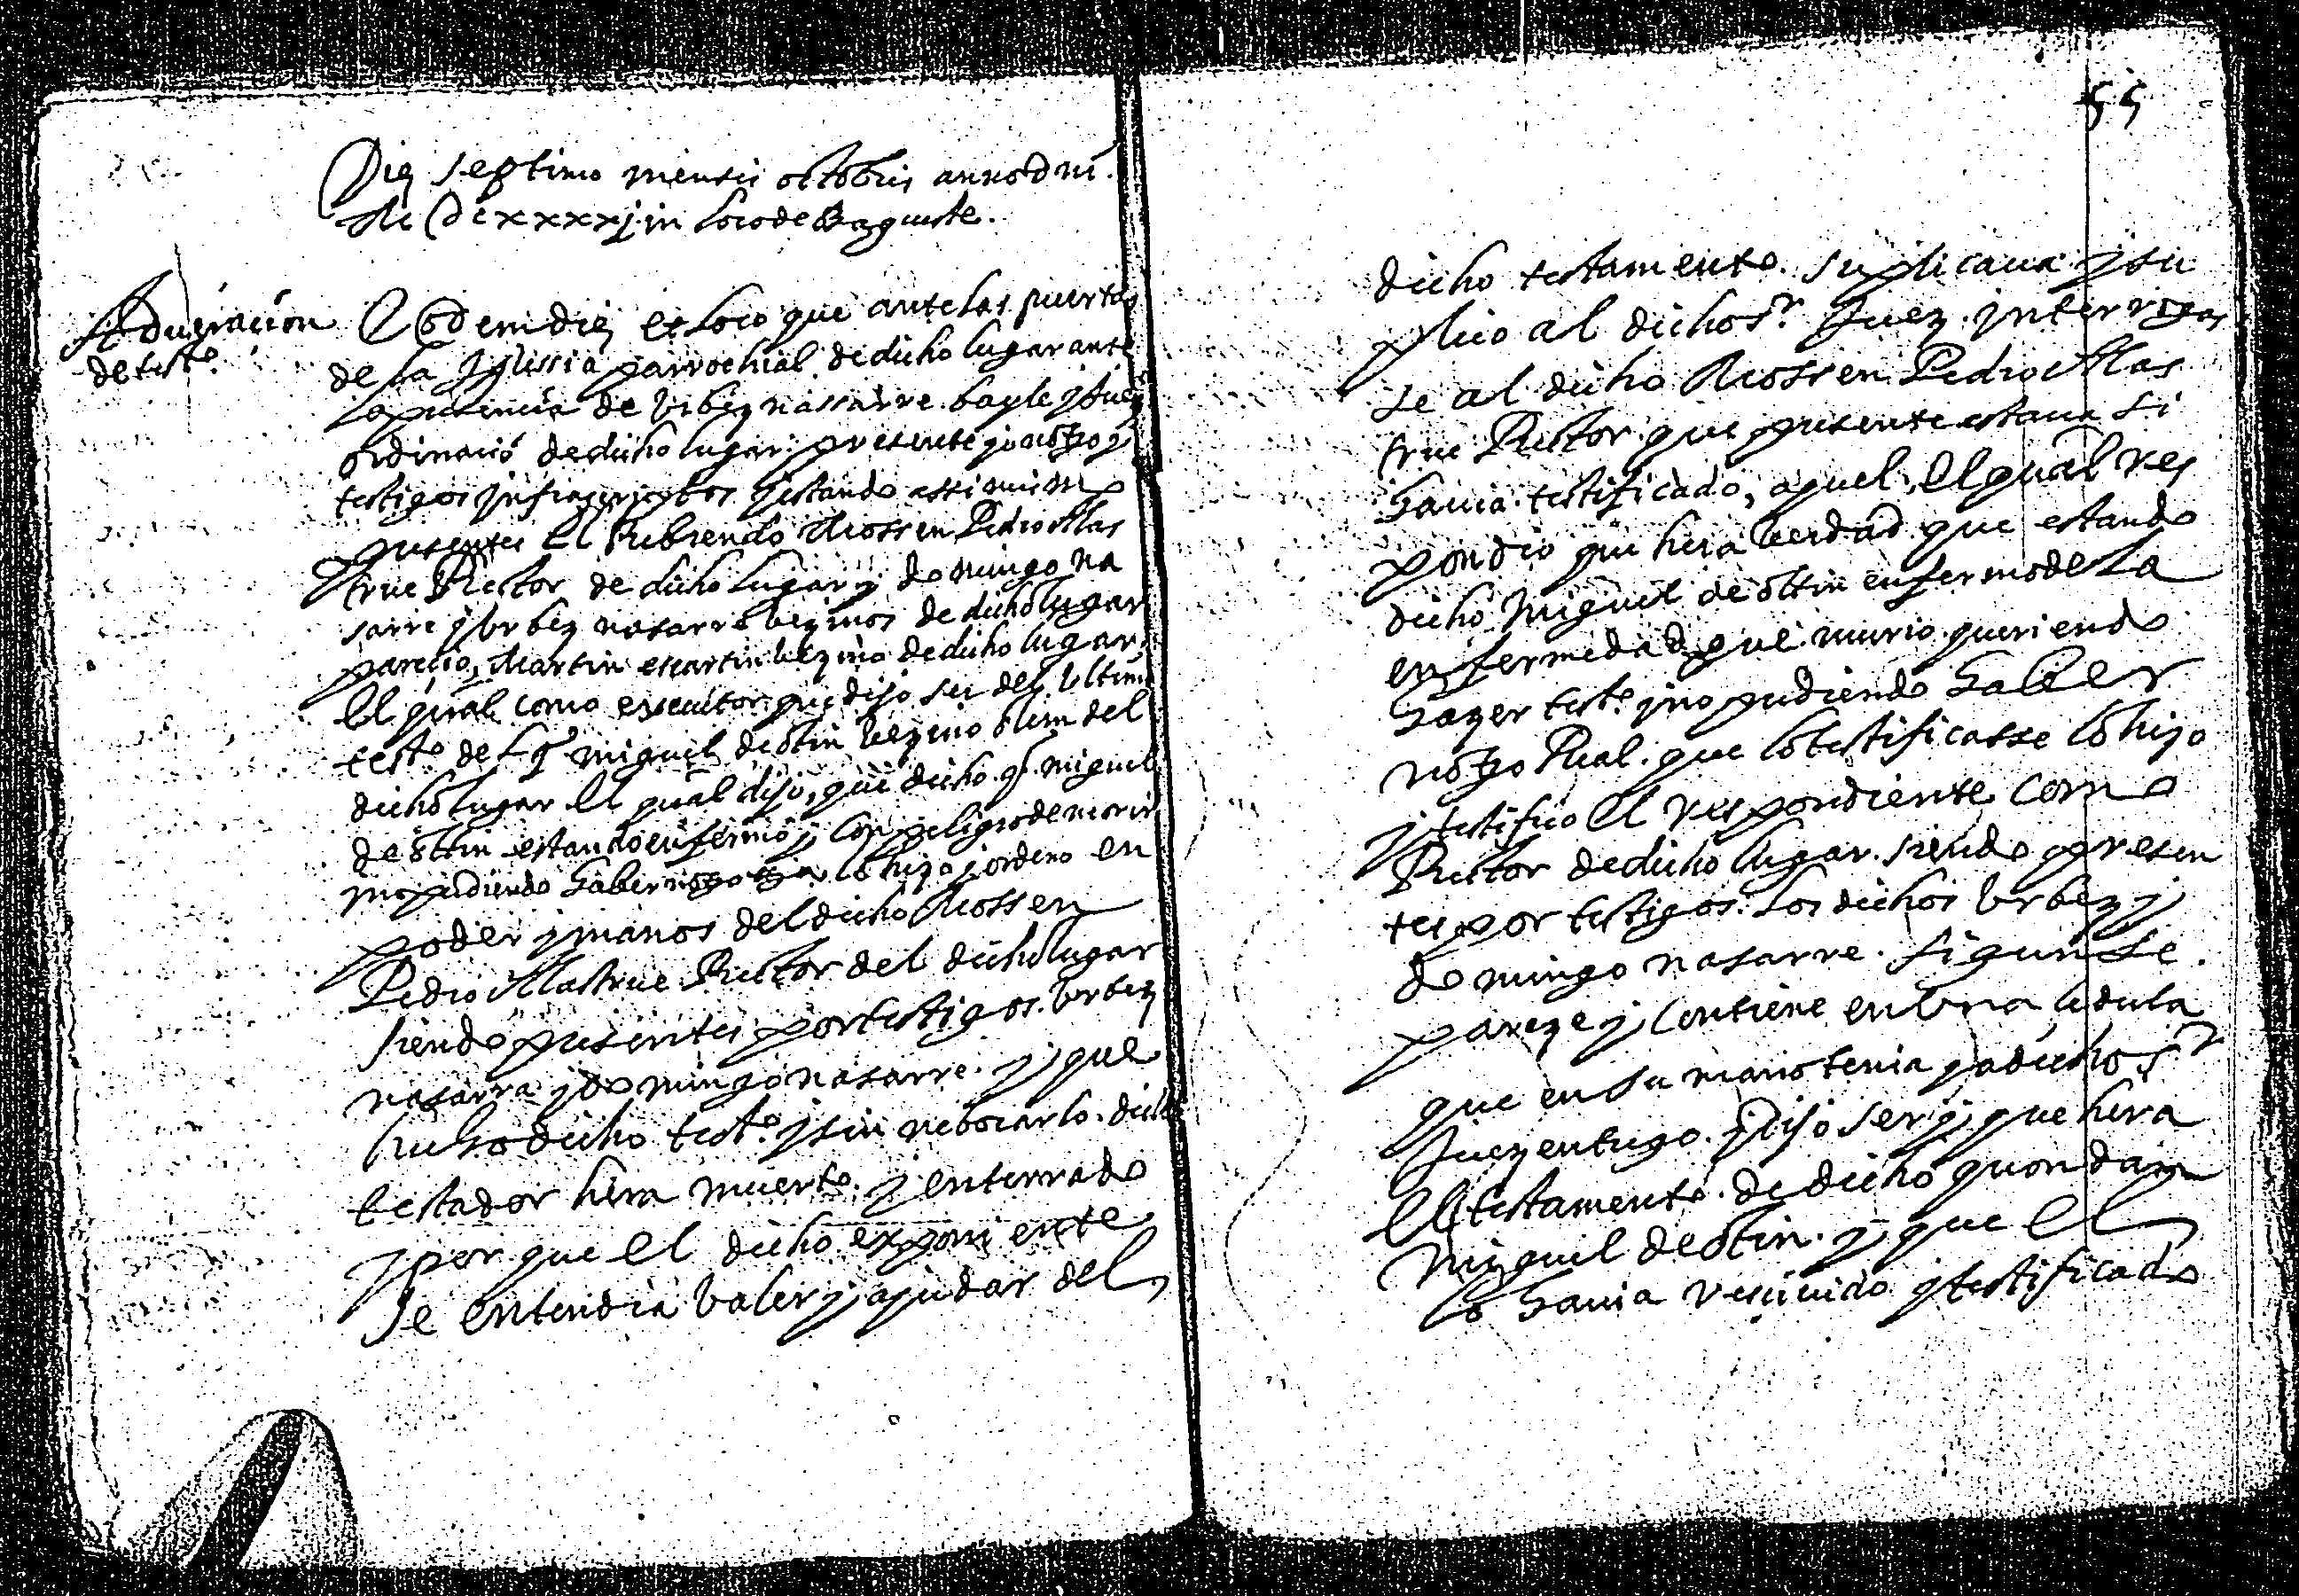 Die septimo mensis octobris anno dni.
M DCxxxxj. in loco de Baguste.
Adueracion
de testto.
Eodem die et loco que ante las puertas
de la Iglessia parrochial de dicho lugar ante
la presencia de Vrbez nassarre bayle y Juez
ordinario de dicho lugar presente yo notto y
testigos infrascriptos y estando assi mismo
presentes el Rebrendo Mossen Pedro Mas
true Rector de dicho lugar y domingo na
sarre y Vrbez nasarre bezinos de dicho lugar
parecio, Martin escartin bezino de dicho lugar
El qual como essecutor que dijo ser del Vltimo
testto de qº miguel de otin bezino olim del
dicho lugar el qual dijo, que dicho qº miguel
de ottin estando enfermo y con peligro de morir
y no pudiendo haber notto lo hizo y ordeno en
poder y manos del dicho Mossen
Pedro Mastrue Rector del dicho lugar
siendo presentes por testigos Vrbez
nasarra y domingo nasarre. y que
hecho dicho testto. y sin rebocarlo. dicho
testador hera muerto. y enterrado
y por que el dicho exponiente
se entendia baler y ajudar del
55
dicho testamento. suplicaua y su
plico al dicho sr. Juez. interrogas
se al dicho Mossen Pedro Mas
true Rector que presente estaua si
hauia testificado, aquel, El qual res
pondio que hera berdad que estando
dicho Miguel de ottin enfermo de la
enfermedad que murio queriendo
hazer testto. y no pudiendo haber
notto Real. que lo testificasse lo hizo
y testifico el respondiente como
Rector de dicho lugar. siendo presen
tes por testigos. los dichos Vrbez y
domingo nasarre. sigun se
pareze y contiene en Vna cedula
que en su mano tenia y a dicho sr
Juez entrego. y dijo ser y que hera
El testamento. de dicho quondam
Miguel de otin. y que el
lo hauia resciuido y testificado